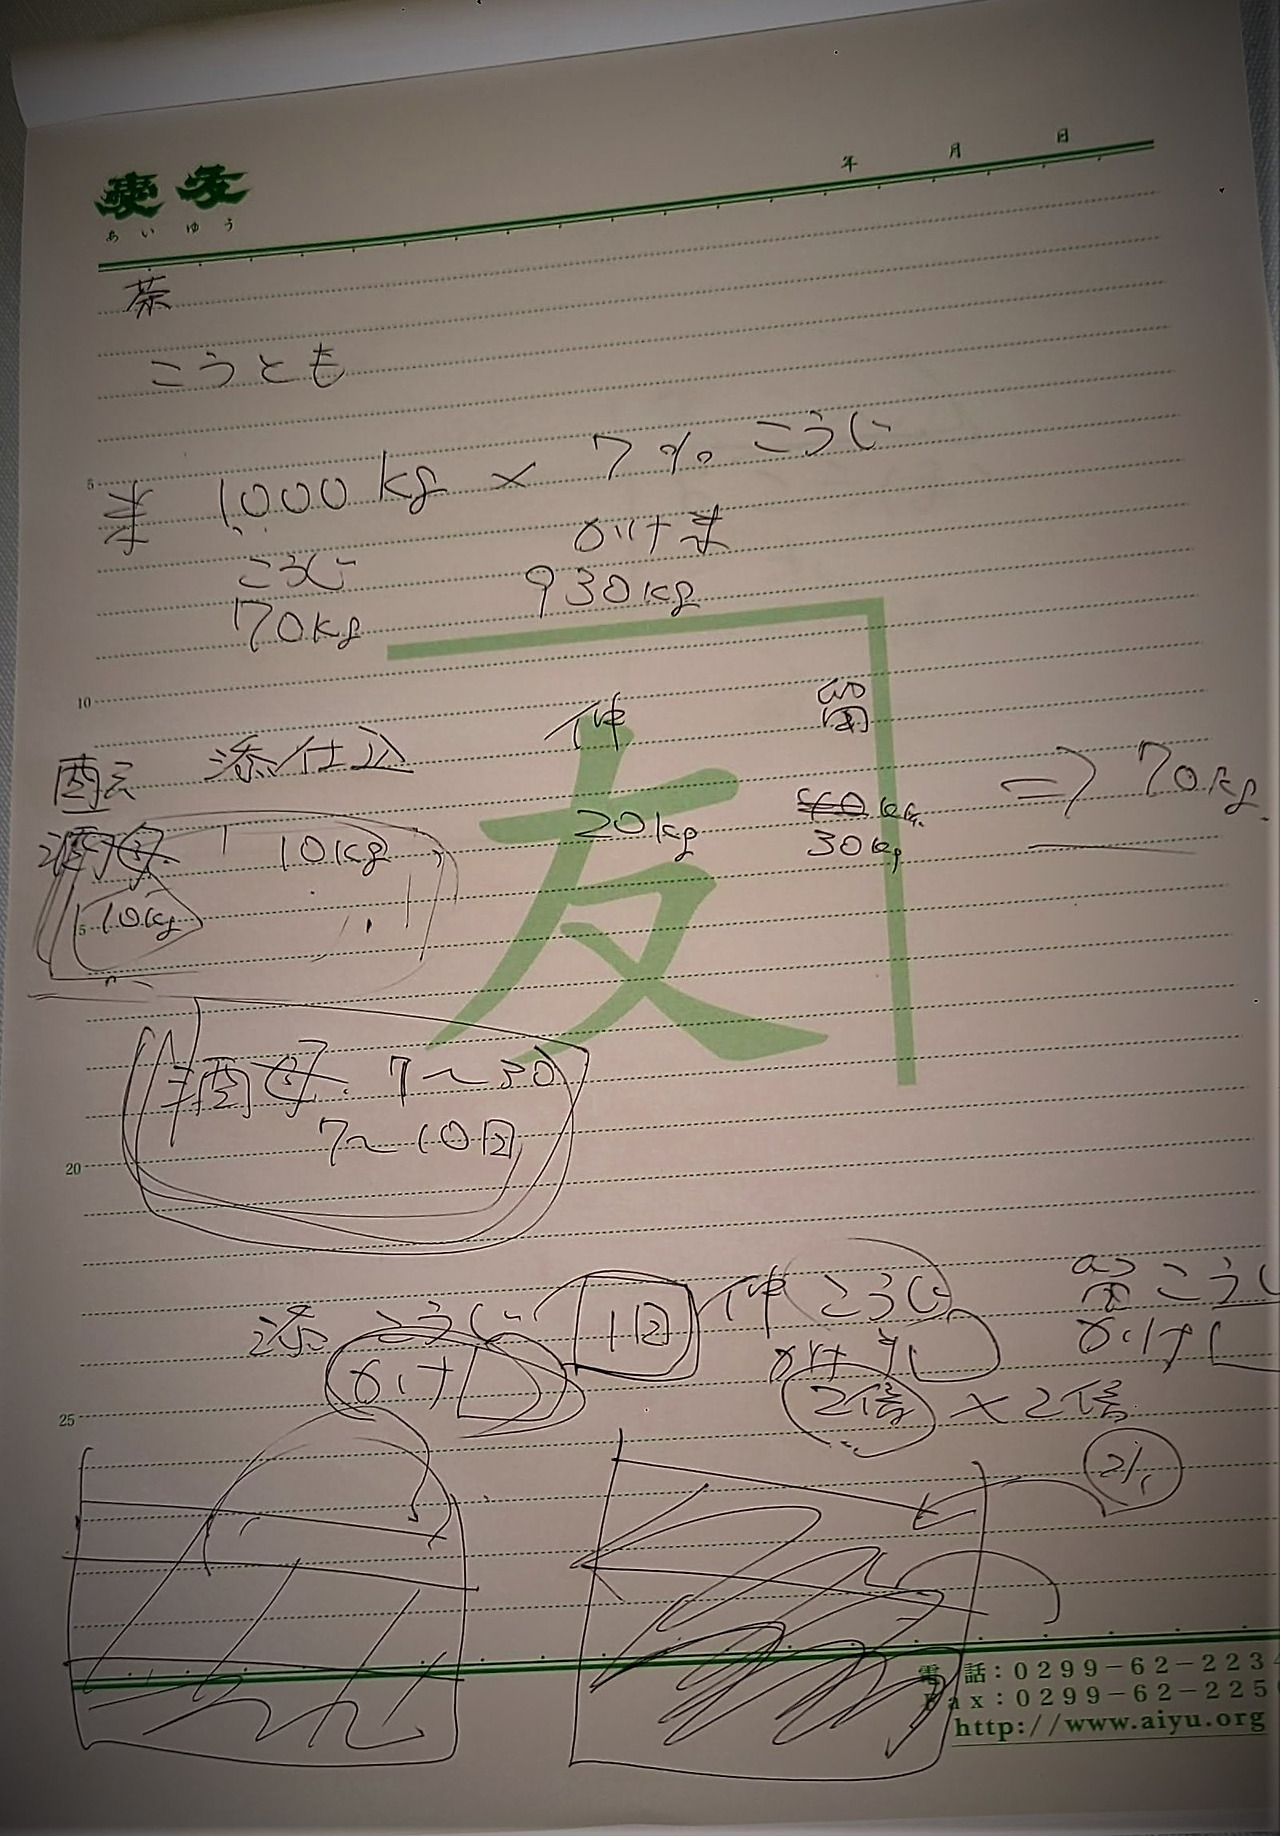 愛友
あいゆう
年 月 日
茶
こうとも
米 1000kg × 7% こうじ
こうじ かけ米
70kg 930kg
添仕込 仲 留
酒母 10kg 20kg 30kg ⇒ 70kg
10kg
酒母 7〜30
7〜10日
添 こうじ 1日 仲 こうじ 留 こうじ
かけ かけ かけ
2倍 × 2倍
5
10
20
25
友
電 話:0299-62-223
Fax:0299-62-225
http://www.aiyu.org